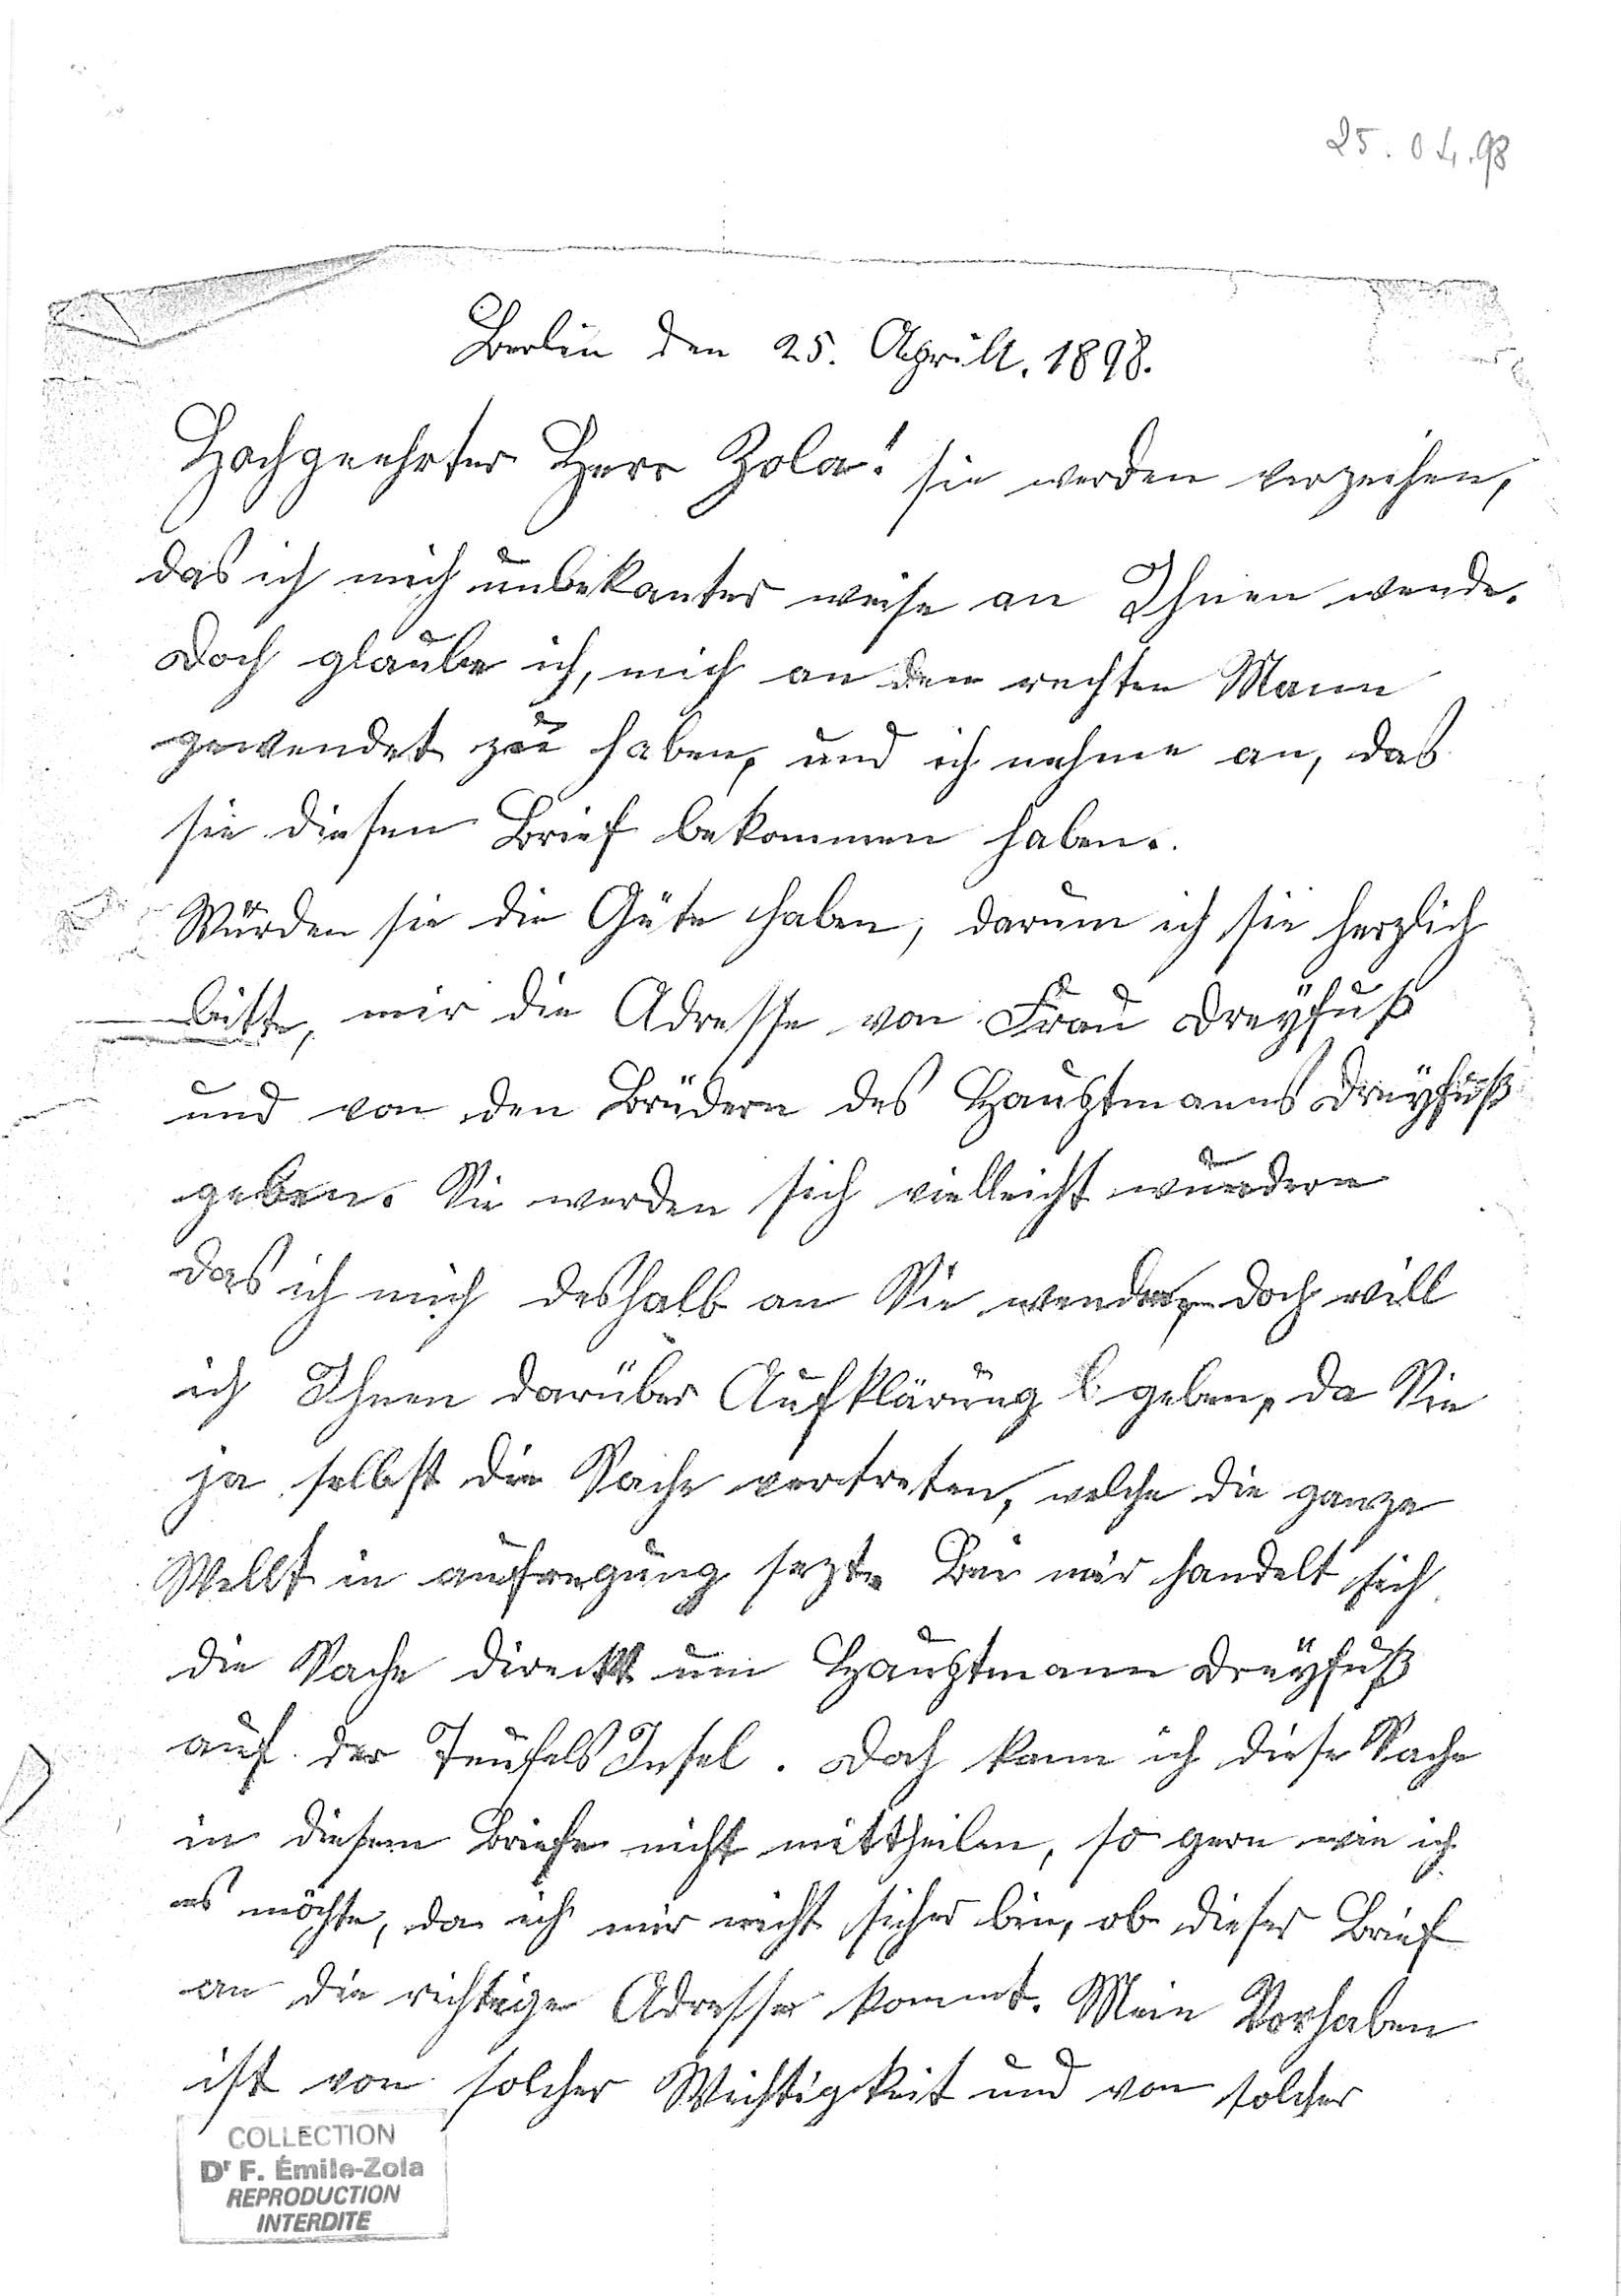 25.04.98
Berlin den 25. Aprill. 1898.
Hochgeehrter Herr Zola! sie werden verzeihen,
das ich mich unbekanter weise an Ihnen wende.
Doch glaube ich, mich an den rechten Mann
gewendet zu haben, und ich nehme an, das
sie diesen Brief bekommen haben.
Würden sie die Güte haben, darum ich sie herzlich
bitte, mir die Adresse von Frau Dreÿfuß
und von den Brüdern des Hauptmanns Dreÿfuß
geben. Sie werden sich vielleicht wundern
das ich mich deshalb an Sie wende, doch will
ich Ihnen darüber Aufklärung geben, da Sie
ja selbst die Sache vertreten, welche die ganze
Wellt in aufregung sezte Bei mir handelt sich
die Sache direckt um Hauptmann Dreÿfuß
auf der Teufels Insel. Doch kann ich diese Sache
in diesem Briefe nicht mittheilen, so gern wie ich
es möchte, da ich mir nicht sicher bin, ob dieser Brief
an die richtige Adresse kommt. Mein Vorhaben
ist von solcher Wichtigkeit und von solcher
COLLECTION
Dr F. Émile-Zola
REPRODUCTION
INTERDITE